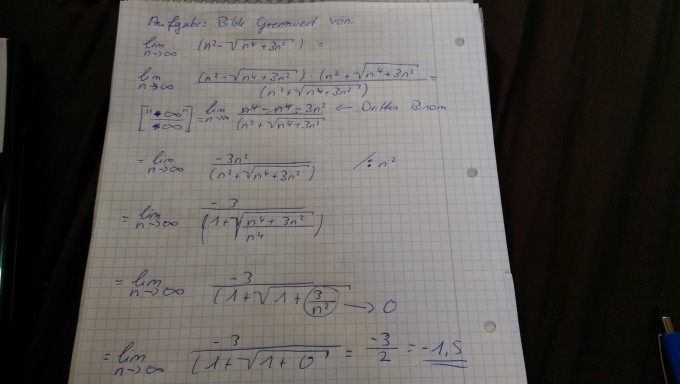 Aufgabe: Bilde Grenzwert von:
lim n→∞ (n² - √(n⁴ + 3n²)) =
lim n→∞ (n² - √(n⁴ + 3n²)) · (n² + √(n⁴ + 3n²)) / (n² + √(n⁴ + 3n²)) =
["∞/∞"] = lim n→∞ n⁴ - n⁴ - 3n² / (n² + √(n⁴ + 3n²)) ← Drittes Binom
= lim n→∞ -3n² / (n² + √(n⁴ + 3n²)) /: n²
= lim n→∞ -3 / (1 + √((n⁴ + 3n²) / n⁴))
= lim n→∞ -3 / (1 + √(1 + 3/n²)) → 0
= lim n→∞ -3 / (1 + √(1 + 0)) = -3/2 = -1,5